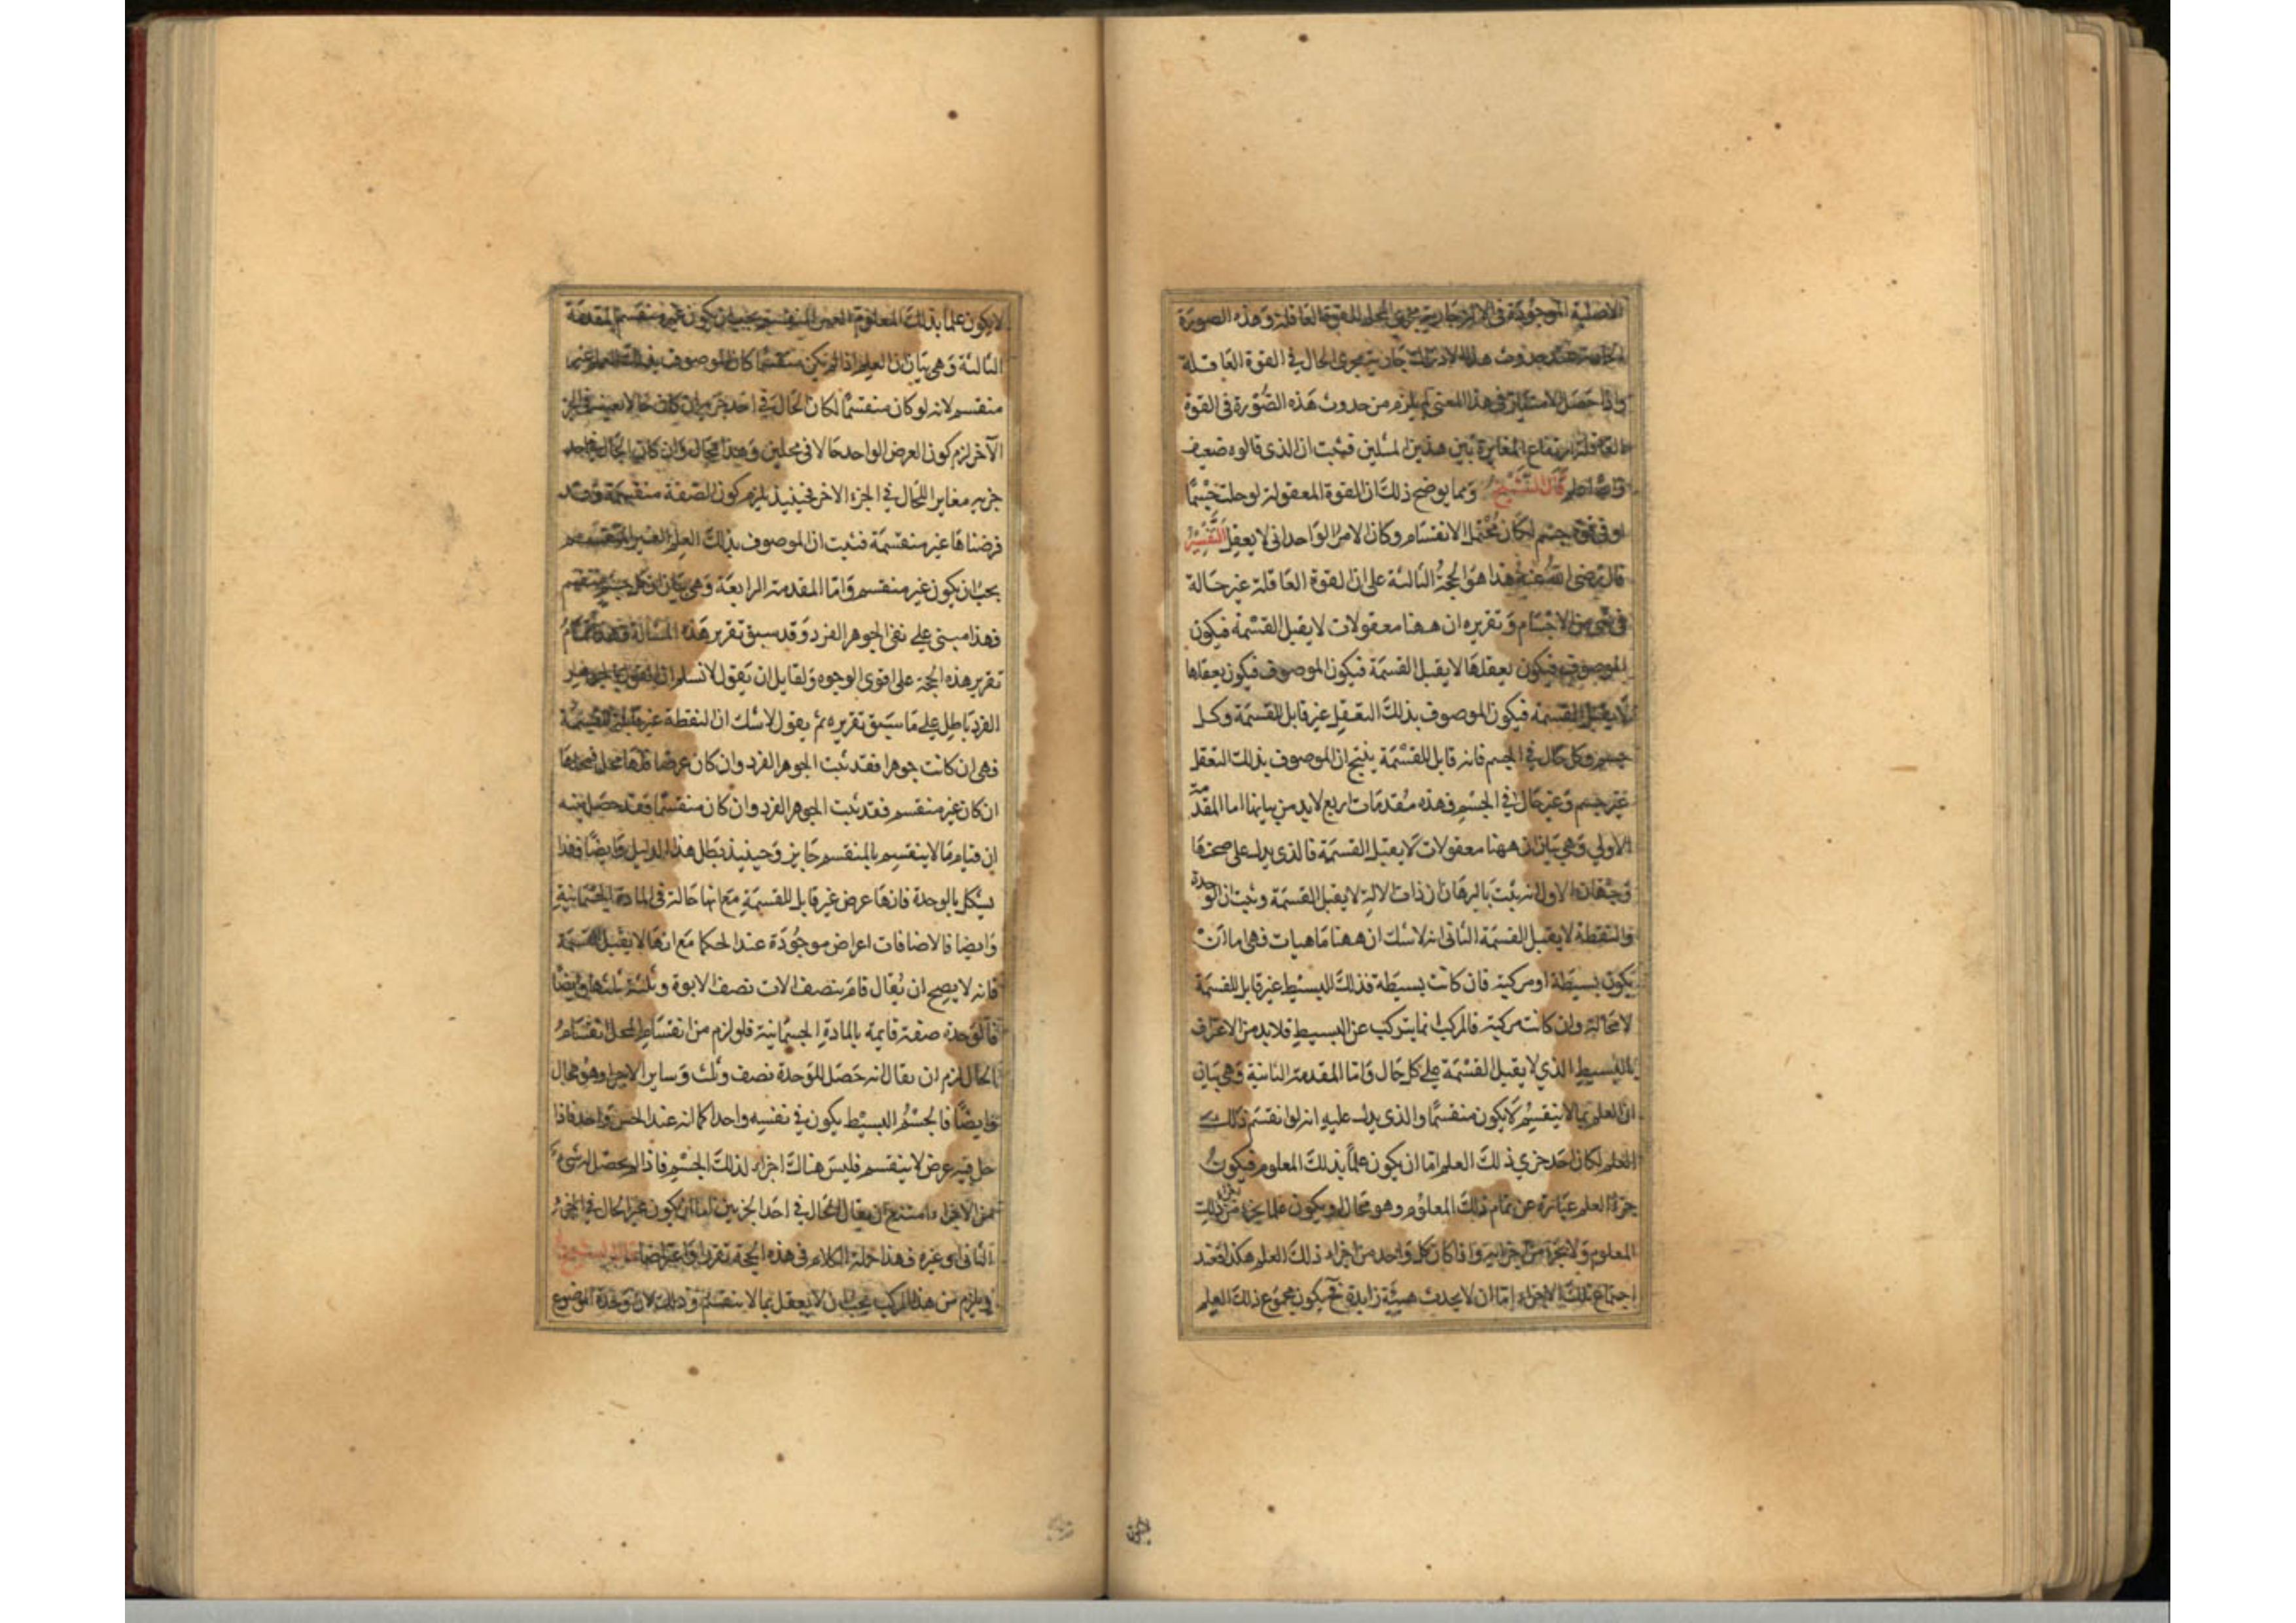 الاصلية الموجودة في الالة جارية مجرى المحل للقوة العاقلة وهذه الصورة
الحادثة عند حدوث هذا الادراك جارية مجرى الحال في القوة العاقلة
واذا حصل الامتياز في هذا المعنى لم يلزم من حدوث هذه الصورة في القوة
العاقلة ارتفاع المغايرة بين هذين المثلين فثبت ان الذي قالوه ضعيف
والله اعلم قال الشيخ ومما يوضح ذلك ان القوة المعقولة لو حلت جسما
او في قوة جسم لكان محتمل الانقسام وكان الامر الواحداني لا يعقل التفسير
قال رضي الله عنه هذا هو الحجة الثالثة على ان القوة العاقلة غير حالة
في شي من الاجسام وتقريره ان ههنا معقولات لا يقبل القسمة فيكون
الموصوف فيكون بعقلها لا يقبل القسمة فيكون الموصوف فيكون بعقلها
لا يقبل القسمة فيكون الموصوف بذلك التعقل غير قابل للقسمة وكل
جسم وكل حال في الجسم فانه قابل للقسمة ينتج ان الموصوف بذلك التعقل
غير جسم وغير حال في الجسم فهذه مقدمات اربع لابد من بيانها اما المقدمة
الاولي وهي بيان ان ههنا معقولات لا يقبل القسمة فالذي يدل على صحتها
وجهان الاول انه ثبت بالبرهان ان ذات الاله لا يقبل القسمة وثبت ان الوحدة
والنقطة لا يقبل القسمة الثاني انه لا شك ان ههنا ماهيات فهي اما ان
يكون بسيطة او مركبة فان كانت بسيطة فذلك البسيط غير قابل للقسمة
لا محالة وان كانت مركبة فالمركب انما يتركب عن البسيط فلابد من الاعتراف
بالبسيط الذي لا يقبل القسمة على كل حال واما المقدمة الثانية وهي بيان
ان العلم بما لا ينقسم لا يكون منقسما والذي يدل عليه انه لو انقسم ذلك
العلم لكان احد جزي ذلك العلم اما ان يكون علما بذلك المعلوم فيكون
جزء العلم عبارة عن تمام ذلك المعلوم وهو محال او يكون علما بجزء من ذلك
المعلوم ولا بجزء من اجزايه واذا كان كل واحد من اجزاء ذلك العلم هكذا فعند
اجتماع تلك الاجزاء اما ان لا يحدث هيئة زايدة فح يكون مجموع ذلك العلم
لا يكون علما بذلك المعلوم الغير المنقسم يجب ان يكون غير منقسم المقدمة
الثالثة وهي بيان ان العلم اذا لم يكن منقسما كان الموصوف بذلك العلم غير
منقسم لانه لو كان منقسما لكان الحال في احد جزيه ان كان حالا بعينه في الجز
الآخر لزم كون العرض الواحد حالا في محلين وهذا محال وان كان الحال في احد
جزيه مغايرا للحال في الجزء الاخر فحينيذ يلزم كون الصفة منقسمة وقد
فرضناها غير منقسمة فثبت ان الموصوف بذلك العلم الغير المنقسم
يجب ان يكون غير منقسم واما المقدمة الرابعة وهي بيان ان كل جسم منقسم
فهذا مبني على نفي الجوهر الفرد وقد سبق تقرير هذه المسالة فهذا تمام
تقرير هذه الحجة على اقوى الوجوه ولقايل ان يقول لا نسلم ان القول بالجوهر
الفرد باطل على ما سبق تقريره ثم يقول لا شك ان النقطة غير قابلة للقسمة
فهي ان كانت جوهرا فقد ثبت الجوهر الفرد وان كان عرضا فلها محل فمحلها
ان كان غير منقسم فقد ثبت الجوهر الفرد وان كان منقسما فقد حصل منه
ان قيام ما لا ينقسم بالمنقسم جايز وحينيذ بطل هذا الدليل وايضا فهذا
يشكل بالوحدة فانها عرض غير قابل للقسمة مع انها حالة في المادة الجسمانية
وايضا فالاضافات اعراض موجودة عند الحكما مع انها لا يقبل القسمة
فانه لا يصح ان يقال قام بنصف الاب نصف الابوة وبثلثه ثلثها وايضا
فالوحدة صفة قايمة بالمادة الجسمانية فلو لزم من انقسام المحل انقسام
الحال لزم ان يقال انه حصل للوحدة نصف وثلث وساير الاجزا وهو محال
وايضا فالجسم البسيط يكون في نفسه واحدا كما انه عند الحس واحد فاذا
حل فيه عرض لا ينقسم فليس هناك اجزاء لذلك الجسم فاذا لم يحصل له شيء
من الاجزاء امتنع ان يقال الحال في احد الجزيين اما ان يكون عين الحال في الجزء
الثاني او غيره فهذا جملة الكلام في هذه الحجة تقريرا واعتراضا قال الشيخ
وليلزم من هذا المركب يجب ان لا يعقل بما لا ينقسم وذلك لان وحدة الموضوع